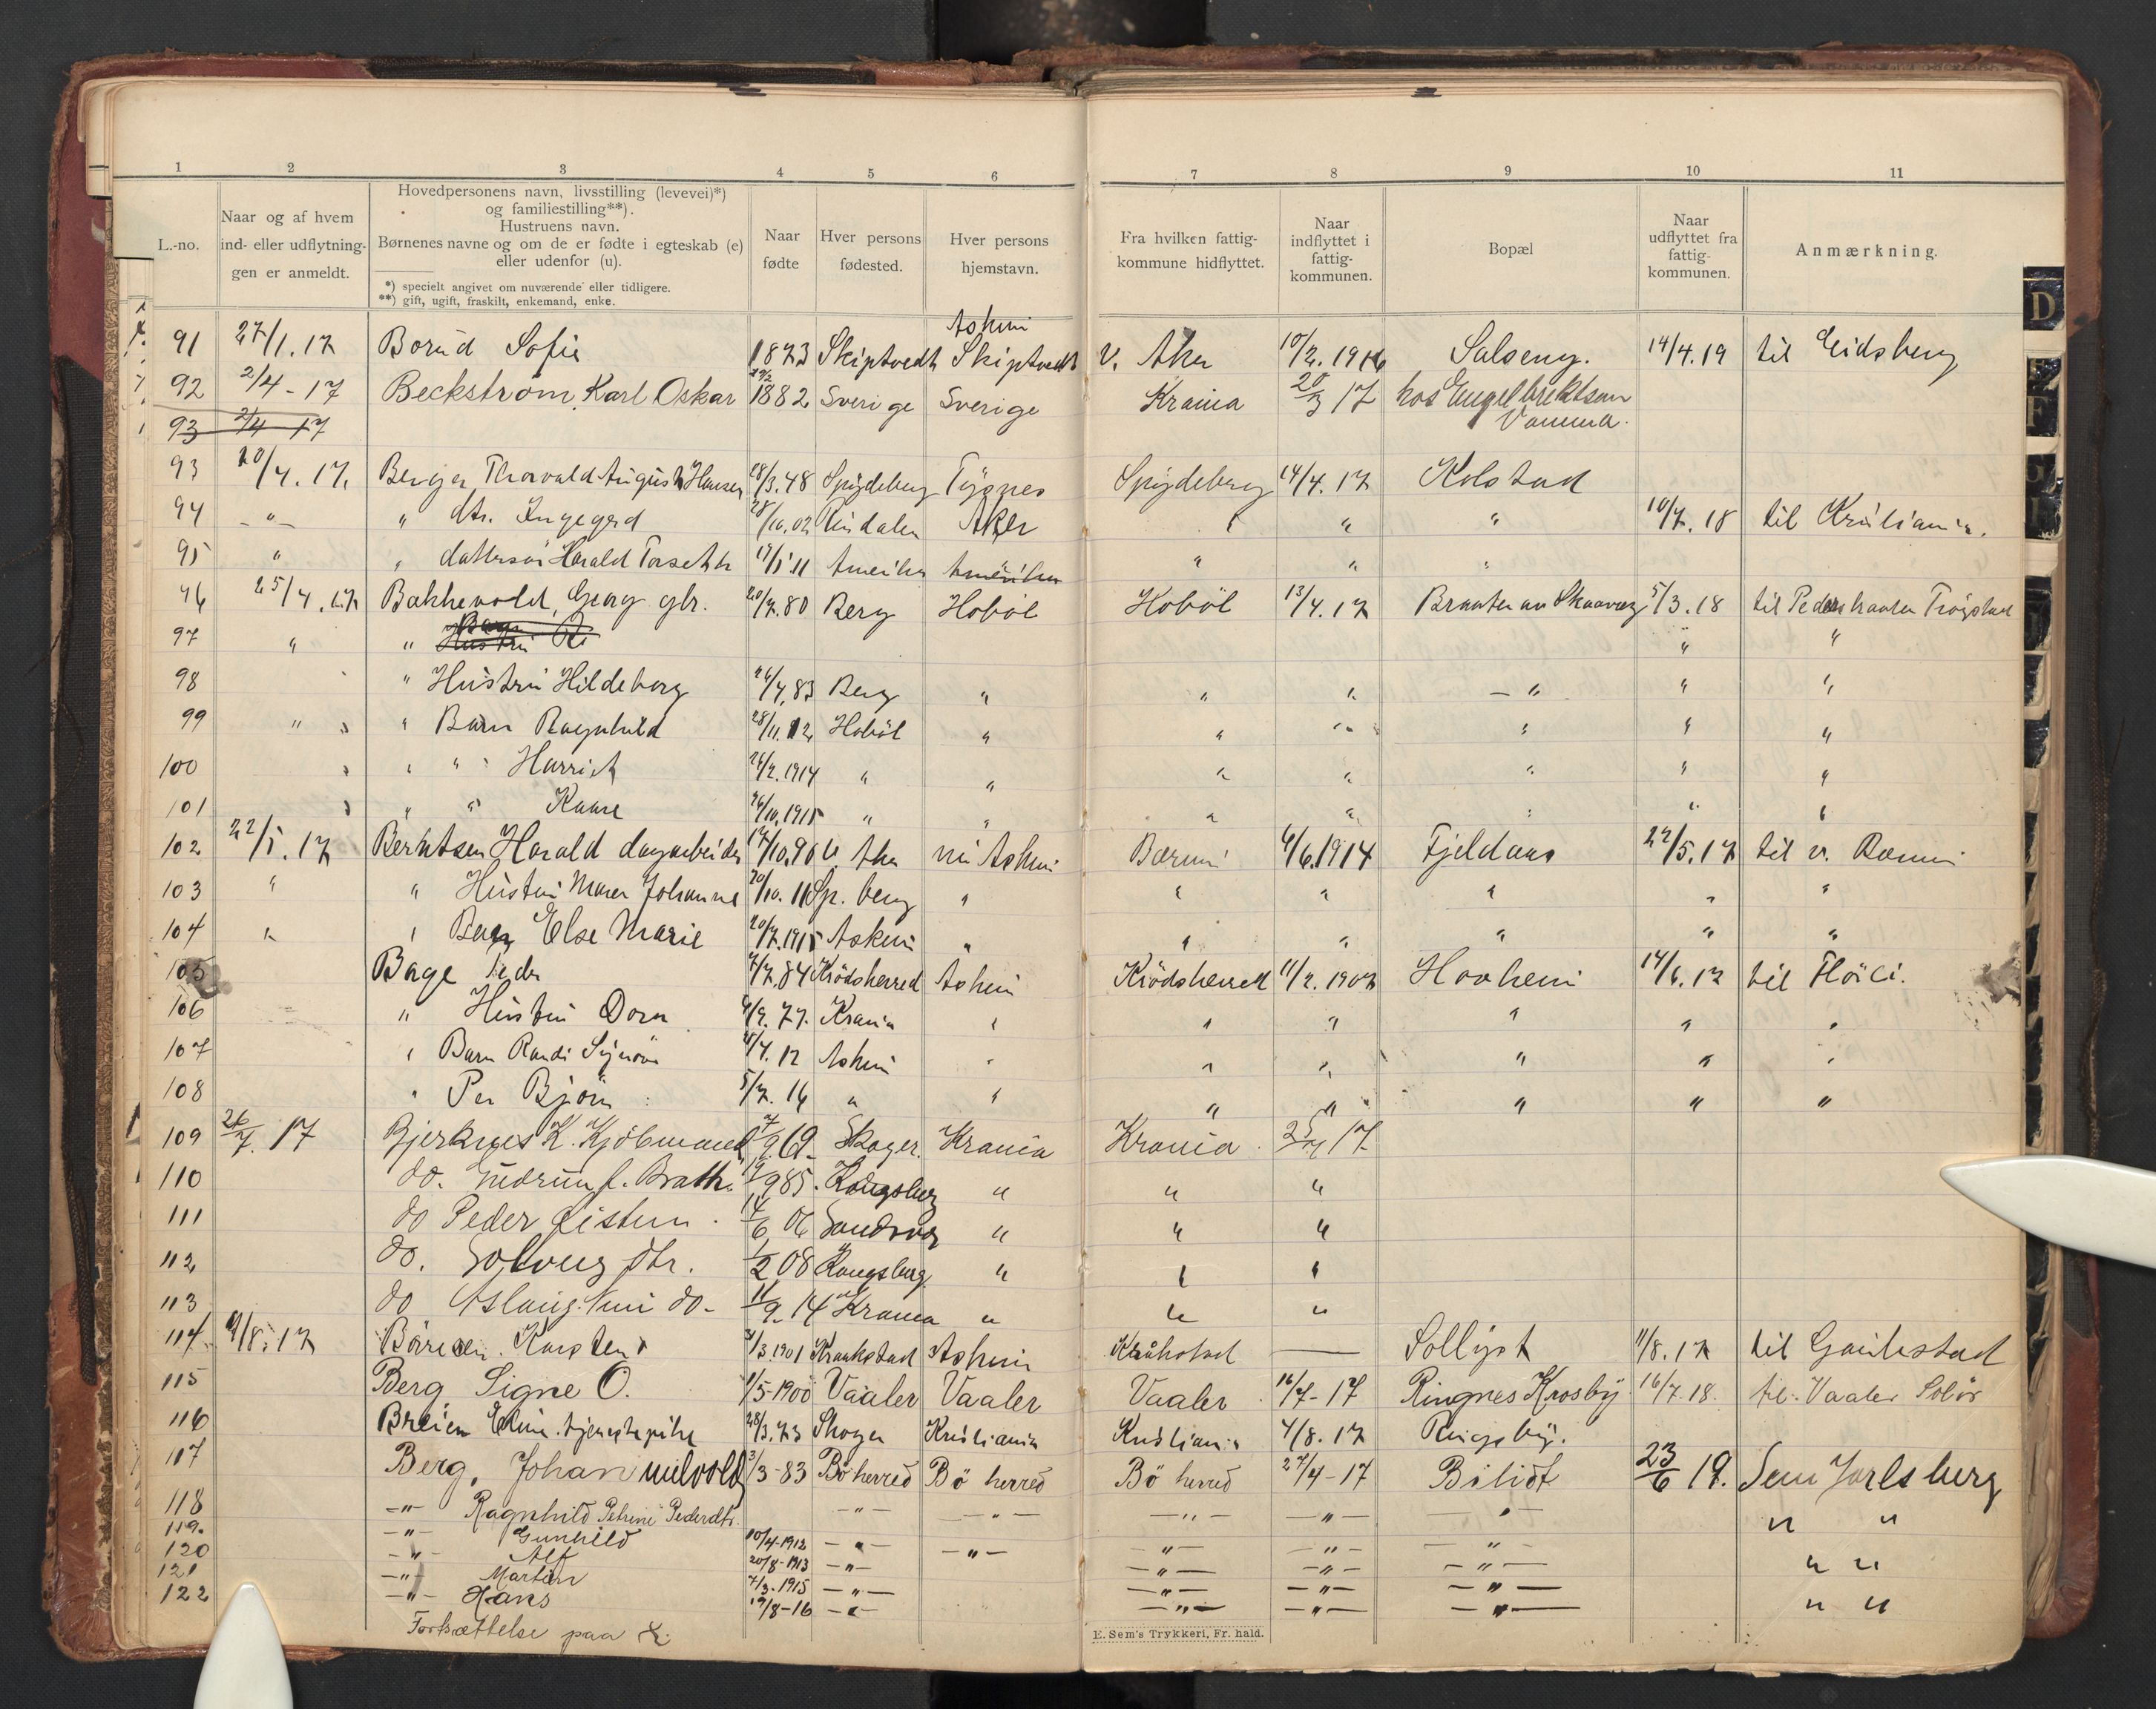 1 2 3 4 5 6 7 8 9 10 11
L.-no.
Naar og af hvem ind- eller udflytningen er anmeldt.
Hovedpersonens navn, livsstilling (levevei)*) og familiestilling**).
Hustruens navn.
Børnenes navne og om de er fødte i egteskab (e) eller udenfor (u).
*) specielt angivet om nuværende eller tidligere.
**) gift, ugift, fraskilt, enkemand, enke.
Naar fødte
Hver persons fødested.
Hver persons hjemstavn.
Fra hvilken fattigkommune hidflyttet.
Naar indflyttet i fattigkommunen.
Bopæl
Naar udflyttet fra fattigkommunen.
Anmærkning.
91 27/1.17 Borud Sofie 1873 Skiptvedt Askim Skiptvedt V. Aker 10/2.1916 Salseng. 14/4.19 til Eidsberg
92 2/4-17 Beckstrøm, Karl Oskar 1882 Sverige Sverige Krania 20/3 17 hos Engelbrektsen Vamma.
93 2/4 17
93 20/4.17. Berger Thorvald August Hansen 28/3.48 Spydeberg Tysnes Spydeberg 14/4.17 Kolstad
94 -"- " dtr. Ingegerd 28/10.02 Aker " " 10/7.18 til Kristiania.
95 " " dattersøn Harald Torseth 19/5 11 Amerika Amerika " " "
96 25/4.17 Bakkevold, Georg gbr. 20/7.80 Berg Hobøl Hobøl 13/4.17 Braaten av Skaavag 5/3.18 til Pedersbraaten Trøgstad
97 " " Hustru " "
98 " Hustru Hildeborg 26/4.83 Berg " " " - " " "
99 " " Barn Ragnhild 28/11.12 Hobøl " " " " " "
100 " " Harriet 26/2.1914 " " " " " " "
101 " " Kaare 26/10.1915 " " " " " " "
102 22/5.17 Berntsen Harald dagarbeider 17/10.90 V Aker nu Askim Bærum 4/6.1914 Fjeldaas 22/5.17 til v. Bærum
103 " " Hustru Maren Johanne 20/10. Sp. berg " " " " " "
104 " " Barn Else Marie 20/7.1915 Askim " " " " " "
105 Bage Peder 7/7.84 Krødsherred Askim Krødsherred 11/2.1907 Hovheim 14/6.17 til Fløici.
106 " Hustru Dora 4/9.77. Krania " " " " " "
107 " Barn Randi Synøve 4/4.12 Askim " " " " " "
108 " Per Bjørn 5/7.16 " " " " " " "
109 26/7. 17 Bjerknes K. Kjøbmand 7/9 69 Skoger. Krania Krania 25/7 17
110 do. Gudrun f. Brath. 19/9 85. Kongsberg " " "
111 do Peder Eistein. 14/6 06 Sandsvær " " "
112 do. Solveig dtr. 1/2 08 Kongsberg " " "
113 do Aslaug do- 11/9 14 Krania " " "
114 9/8.17 Børresen Karsten 3/3.1901 Kraakstad Askim Kraakstad — Sollyst 11/8.17 til
115 Berg Signe O. 1/5-1900 Vaaler Vaaler Vaaler 16/7-17 Ringnes Krosby 16/7.18. til Vaaler Solør
116 Breien Eline tjenestepike 28/3.73 Skoger Kristiania Kristiania 4/8.17 Ringsby.
117 Berg, Johan 3/3-83 Bø herred Bø herred Bø herred 27/4-17 Bilidt 23/6 19. Sem Jarlsberg
118 -"- Ragnhild Petrine Pedersdtr. -"- -"- -"- -"- -"- " "
119. -"- Gunhild 10/4-1912 -"- -"- -"- -"- -"-
120 -"- Alf 20/8-1913 -"- -"- -"- -"- " "
121 -"- Martin 7/3-1915 -"- -"- -"- -"-
122 -"- Hans 19/8-16 -"- -"- -"- -"- " "
Fortsættelse paa
E. Sem's Trykkeri, Fr.hald.
D
F